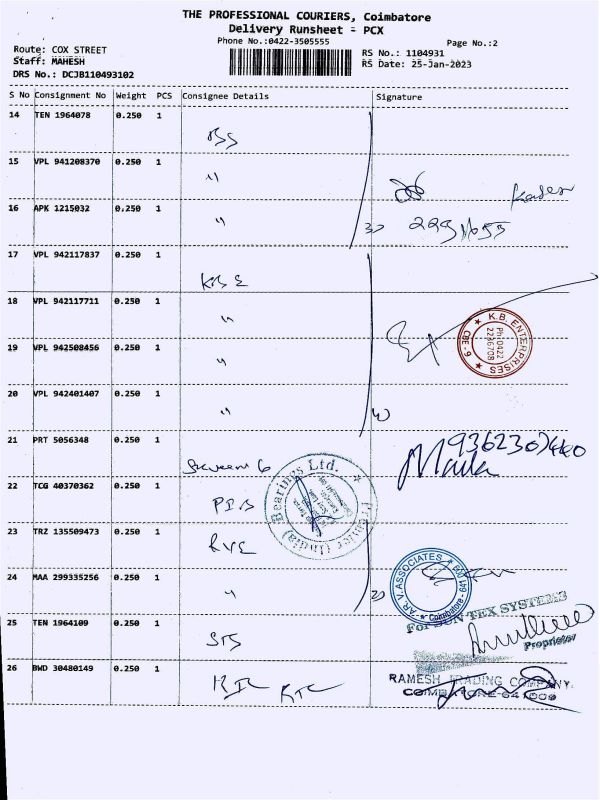 THE PROFESSIONAL COURIERS, Coimbatore
Delivery Runsheet - PCX
Phone No.:0422-3505555
Page No.:2
Route: COX STREET
Staff: MAHESH
DRS No.: DCJB110493102
RS No.: 1104931
RS Date: 25-Jan-2023
S No Consignment No Weight PCS Consignee Details Signature
14 TEN 1964078 0.250 1
15 VPL 941208370 0.250 1 "
16 APK 1215032 0.250 1 "
17 VPL 942117837 0.250 1
18 VPL 942117711 0.250 1 "
19 VPL 942508456 0.250 1 "
K.B. ENTERPRISES
Ph: 0422
2236708
CBE - 6
20 VPL 942401407 0.250 1 "
21 PRT 5056348 0.250 1
22 TCG 40370362 0.250 1
Premier (India) Bearings Ltd.
23 TRZ 135509473 0.250 1 RVE
24 MAA 299335256 0.250 1 "
AR.V. ASSOCIATES
Coimbatore - 641 009
25 TEN 1964109 0.250 1 STS
For SUN TEX SYSTEMS
Proprietor
26 BWD 30480149 0.250 1 RTC
RAMESH TRADING COMPANY,
COIMBATORE-641009